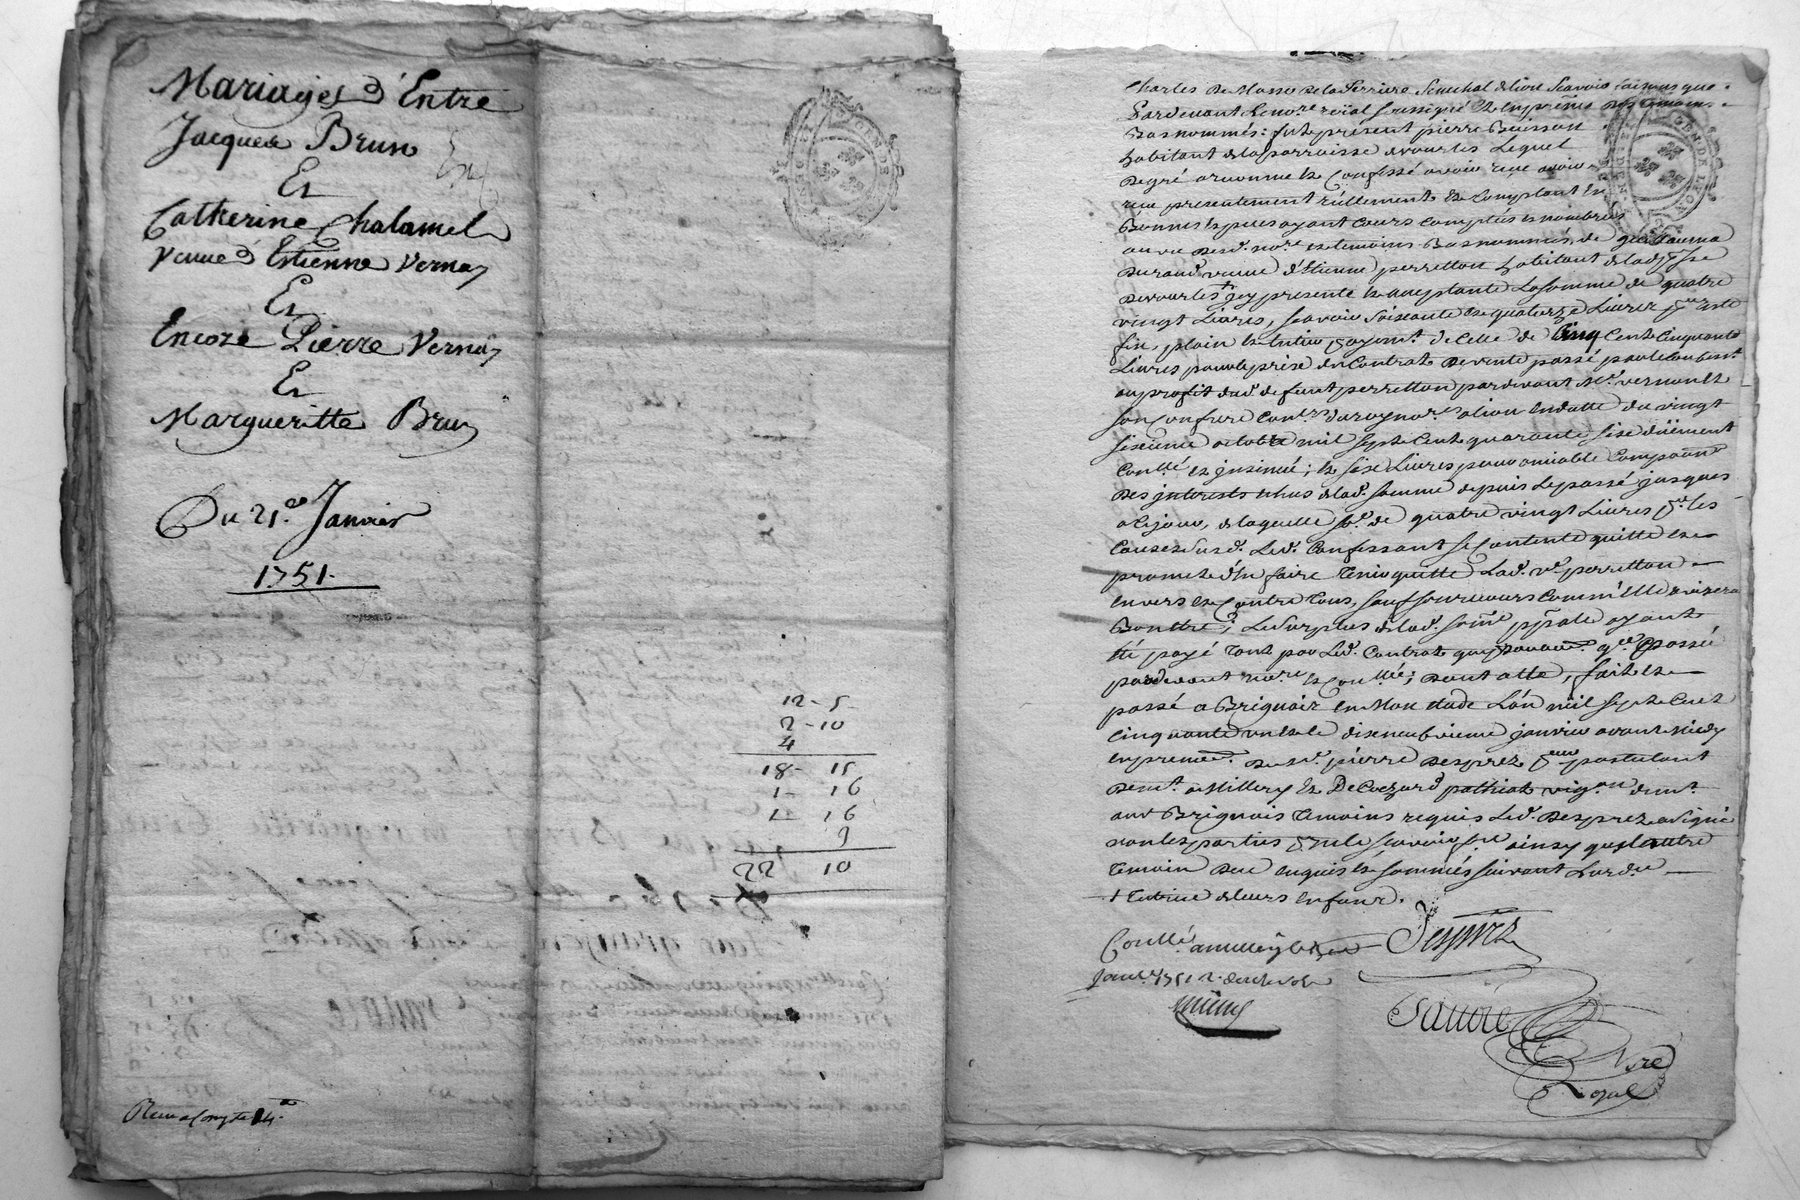 Mariages d'Entre
Jacques Brun
Et
Catherine Chalamel
veuve d'Estienne Vernay
Et
Encore Pierre Vernay
Et
Margueritte Brun
Du 21.e Janvier
1751.
12-5
2-10
4
18-15
1-16
1-16
9
22 10
Charles de Masso de la Ferriere Senechal de Lion Scavoir faisons que
Pardevant le no.re roïal soussigné et en presence des temoins
Bas nommés: fut present pierre Buisson
habitant de la parroisse de vourles Lequel
de gré a reconnu et Confessé avoir reçu
presentement réellement et Comptant en
Bonnes especes ayant Cours Comptées et nombrées
au vu desd. no.re et temoins Bas nommés, de
Durand veuve d'Etienne perretton habitante de lad.
de vourles icy presente et acceptante La somme de quatre
vingt Livres, scavoir soixante et quatorze Livres
fin, plain et entier payem.t de Celle de Cinq Cent Cinquante
Livres pour le prix du Contrat de vente passé par le Confess.t
au profit dud. defunt perretton pardevant M.e vernon et
son Confrere Con.ers du roy no.res a Lion en datte du vingt
sixieme octobre mil sept Cent quarante six düement
Con.llé et insinué; et six Livres pour amiable Compoõn
des interests echus de lad. somme depuis Le passé jusques
a Ce jour, de laquelle s.e de quatre vingt Livres p.r les
Causes susd. Led. Confessant se Contente quitte et
promet d'En faire tenir quitte Lad. v.e perretton
envers et Contre tous, sauf son recours Comm'Elle avisera
Bon etre; Le surplus de lad. somme p̃p̃ale ayant
eté payé tant par Led. Contrat que par
pardevant no.re et Con.llée; dont acte, fait et
passé a Brignais en Mon etude L'an mil sept Cent
cinquante un et le dixneuvieme janvier avant Midy
en presence de s.r pierre Desprez p.eur postulant
dem.t a Millery et de pathiot vig.on dem.t
aud. Brignais temoins requis Led. Desprez a signé
non Les parties p.r ne le scavoir ainsy que L'autre
temoin de ce enquis et sommés suivant L'ord.ce
+ tutrice de leurs enfans.
Desprez
Con.llé a millery le
Janv.r 1751
Sauvié
N.re
Royal